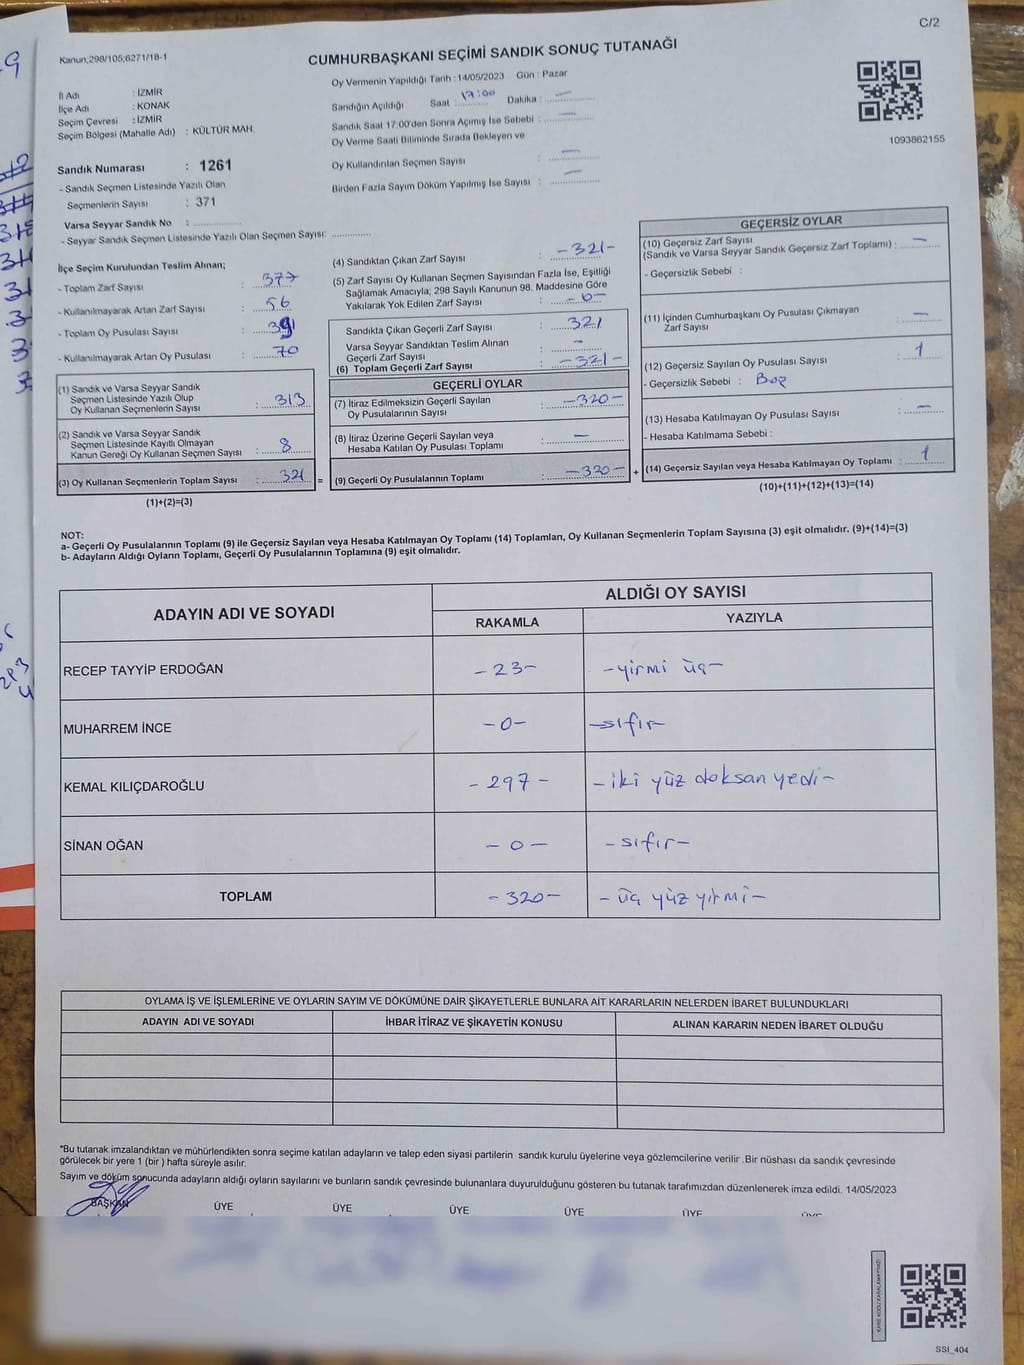 C/2
Kanun;298/105;6271/18-1
CUMHURBAŞKANI SEÇİMİ SANDIK SONUÇ TUTANAĞI
Oy Vermenin Yapıldığı Tarih :14/05/2023 Gün : Pazar
İl Adı : İZMİR
İlçe Adı : KONAK
Seçim Çevresi : İZMİR
Seçim Bölgesi (Mahalle Adı) : KÜLTÜR MAH.
Sandığın Açıldığı Saat : 17:00 Dakika : —
Sandık Saat 17:00'den Sonra Açımış İse Sebebi : —
Oy Verme Saati Bitiminde Sırada Bekleyen ve
Oy Kullandırılan Seçmen Sayısı : —
Birden Fazla Sayım Döküm Yapılmış İse Sayısı : —
1093862155
Sandık Numarası : 1261
- Sandık Seçmen Listesinde Yazılı Olan
Seçmenlerin Sayısı : 371
Varsa Seyyar Sandık No : ..............
- Seyyar Sandık Seçmen Listesinde Yazılı Olan Seçmen Sayısı: ............
İlçe Seçim Kurulundan Teslim Alınan;
- Toplam Zarf Sayısı : 377
- Kullanılmayarak Artan Zarf Sayısı : 56
- Toplam Oy Pusulası Sayısı : 391
- Kullanılmayarak Artan Oy Pusulası : 70
(1) Sandık ve Varsa Seyyar Sandık
Seçmen Listesinde Yazılı Olup
Oy Kullanan Seçmenlerin Sayısı : 313
(2) Sandık ve Varsa Seyyar Sandık
Seçmen Listesinde Kayıtlı Olmayan
Kanun Gereği Oy Kullanan Seçmen Sayısı : 8
(3) Oy Kullanan Seçmenlerin Toplam Sayısı : 321 =
(1)+(2)=(3)
(4) Sandıktan Çıkan Zarf Sayısı : -321-
(5) Zarf Sayısı Oy Kullanan Seçmen Sayısından Fazla İse, Eşitliği
Sağlamak Amacıyla; 298 Sayılı Kanunun 98. Maddesine Göre
Yakılarak Yok Edilen Zarf Sayısı : -0-
Sandıkta Çıkan Geçerli Zarf Sayısı : 321
Varsa Seyyar Sandıktan Teslim Alınan
Geçerli Zarf Sayısı : -
(6) Toplam Geçerli Zarf Sayısı : -321-
GEÇERLİ OYLAR
(7) İtiraz Edilmeksizin Geçerli Sayılan
Oy Pusulalarının Sayısı : -320-
(8) İtiraz Üzerine Geçerli Sayılan veya
Hesaba Katılan Oy Pusulası Toplamı : —
(9) Geçerli Oy Pusulalarının Toplamı : -320- +
GEÇERSİZ OYLAR
(10) Geçersiz Zarf Sayısı
(Sandık ve Varsa Seyyar Sandık Geçersiz Zarf Toplamı) : —
- Geçersizlik Sebebi :
(11) İçinden Cumhurbaşkanı Oy Pusulası Çıkmayan
Zarf Sayısı : —
(12) Geçersiz Sayılan Oy Pusulası Sayısı : 1
- Geçersizlik Sebebi : Boş
(13) Hesaba Katılmayan Oy Pusulası Sayısı : —
- Hesaba Katılmama Sebebi :
(14) Geçersiz Sayılan veya Hesaba Katılmayan Oy Toplamı : 1
(10)+(11)+(12)+(13)=(14)
NOT:
a- Geçerli Oy Pusulalarının Toplamı (9) ile Geçersiz Sayılan veya Hesaba Katılmayan Oy Toplamı (14) Toplamları, Oy Kullanan Seçmenlerin Toplam Sayısına (3) eşit olmalıdır. (9)+(14)=(3)
b- Adayların Aldığı Oyların Toplamı, Geçerli Oy Pusulalarının Toplamına (9) eşit olmalıdır.
ADAYIN ADI VE SOYADI ALDIĞI OY SAYISI
RAKAMLA YAZIYLA
RECEP TAYYİP ERDOĞAN -23- -yirmi üç-
MUHARREM İNCE -0- -sıfır-
KEMAL KILIÇDAROĞLU -297- -iki yüz doksan yedi-
SİNAN OĞAN -0- -sıfır-
TOPLAM -320- -üç yüz yirmi-
OYLAMA İŞ VE İŞLEMLERİNE VE OYLARIN SAYIM VE DÖKÜMÜNE DAİR ŞİKAYETLERLE BUNLARA AİT KARARLARIN NELERDEN İBARET BULUNDUKLARI
ADAYIN ADI VE SOYADI İHBAR İTİRAZ VE ŞİKAYETİN KONUSU ALINAN KARARIN NEDEN İBARET OLDUĞU
*Bu tutanak imzalandıktan ve mühürlendikten sonra seçime katılan adayların ve talep eden siyasi partilerin sandık kurulu üyelerine veya gözlemcilerine verilir .Bir nüshası da sandık çevresinde
görülecek bir yere 1 (bir ) hafta süreyle asılır.
Sayım ve döküm sonucunda adayların aldığı oyların sayılarını ve bunların sandık çevresinde bulunanlara duyurulduğunu gösteren bu tutanak tarafımızdan düzenlenerek imza edildi. 14/05/2023
BAŞKAN ÜYE ÜYE ÜYE ÜYE ÜYE ÜYE
SSI_404